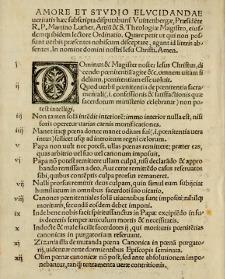 AMORE ET STVDIO ELVCIDANDAE
ueritatis hæc subscripta disputabunť Vuittenbergæ, Præsidéte
R. P. Martino Luther, Artiũ & S. Theologiæ Magistro, eiusdem
ibidem lectore Ordinario. Quare petit ut qui non possunt
uerbis præsentes nobiscum disceptare, agant id literis absentes.
In nomine domini nostri Iesu Christi, Amen.
i DOminus & Magister noster Iesus Christus, dicendo
pœnitentiã agite &c. omnem uitam fidelium,
pœnitentiam esse uoluit.
ij Quod uerbũ pœnitentia de pœnitentia sacramentali
(.i. confessionis & satisfactionis quæ
sacerdotum ministerio celebratur) non potest
intelligi.
iij Non tamen solã intẽdit interiorẽ: immo interior nulla est, nisi
foris operetur uarias carnis mortificationes.
iiij Manet itaq; pœna donec manet odium sui (.i. pœnitentia uera
intus) scilicet usq; ad introitum regni cælorum.
v Papa non uult nec potest, ullas pœnas remittere: præter eas,
quas arbitrio uel suo uel canonum imposuit.
vi Papa nõ potest remittere ullam culpã, nisi declarãdo & approbando
remissam a deo. Aut certe remittẽdo casus reseruatos
sibi, quibus contẽptis culpa prorsus remaneret.
vij Nulli prorsus remittit deus culpam, quin simul eum subijciat
humiliatum in omnibus sacerdoti suo uicario.
viij Canones pœnitentiales solũ uiuentibus sunt impositi: nihilq;
morituris, secundũ eosdem debet imponi.
ix Inde bene nobis facit spiritussanctus in Papa: excipiẽdo in suis
decretis semper articulum mortis & necessitatis.
x Indocte & male faciũt sacerdotes ij, qui morituris pœnitẽtias
canonicas in purgatorium reseruant.
xi Zizania illa de mutanda pœna Canonica in pœnã purgatorij,
uidentur certe dormientibus Episcopis seminata.
xij Olim pœnæ canonicæ nõ post, sed ante absolutionem imponebantur,
tanq̃ tentamenta ueræ contritionis.